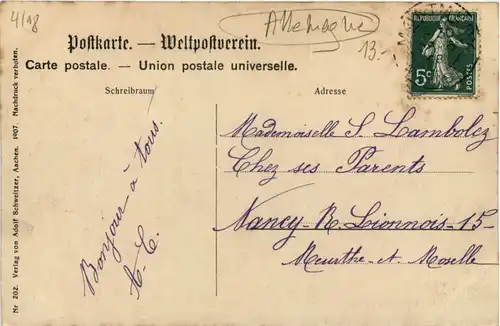 4/18
Allemagne
13.-
Postkarte. — Weltpostverein.
Carte postale. — Union postale universelle.
Schreibraum
Adresse
REPUBLIQUE FRANÇAISE
5c
POSTES
Bonjour à tous.
Mademoiselle S. Lambolez
Chez ses Parents
Nancy - R. Lionnois - 15 -
Meurthe-et-Moselle
Nr 202. Verlag von Adolf Schweitzer, Aachen. 1907. Nachdruck verboten.